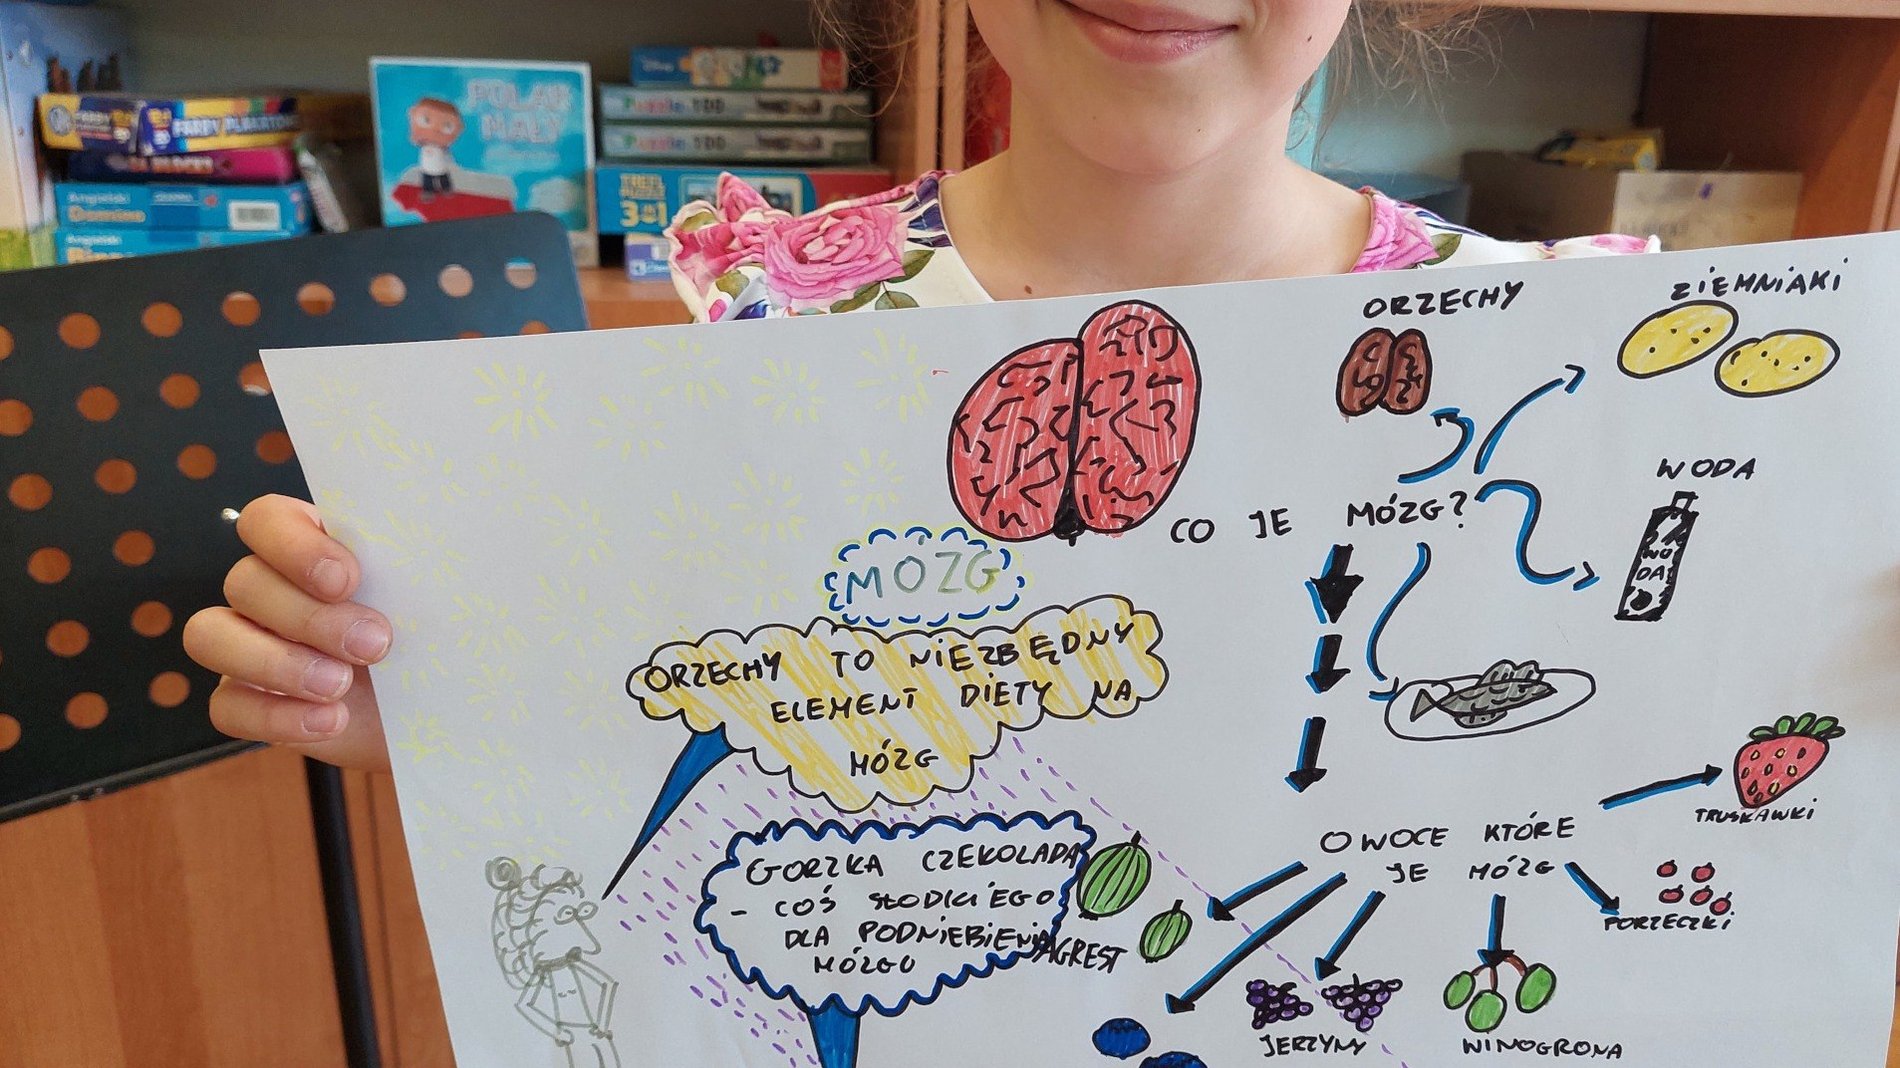 FARBY PLAKATOWE
POLAK
MAŁY
Disney
Puzzle 100
Puzzle 100
3w1
Angielski
Domino
Angielski
ORZECHY
ZIEMNIAKI
WODA
WODA
CO JE MÓZG?
MOZG
ORZECHY TO NIEZBĘDNY
ELEMENT DIETY NA
MÓZG
GORZKA CZEKOLADA
- COŚ SŁODKIEGO
DLA PODNIEBIENIA
MÓZGU
OWOCE KTÓRE
JE MÓZG
TRUSKAWKI
PORZECZKI
AGREST
JERZYNY
WINOGRONA